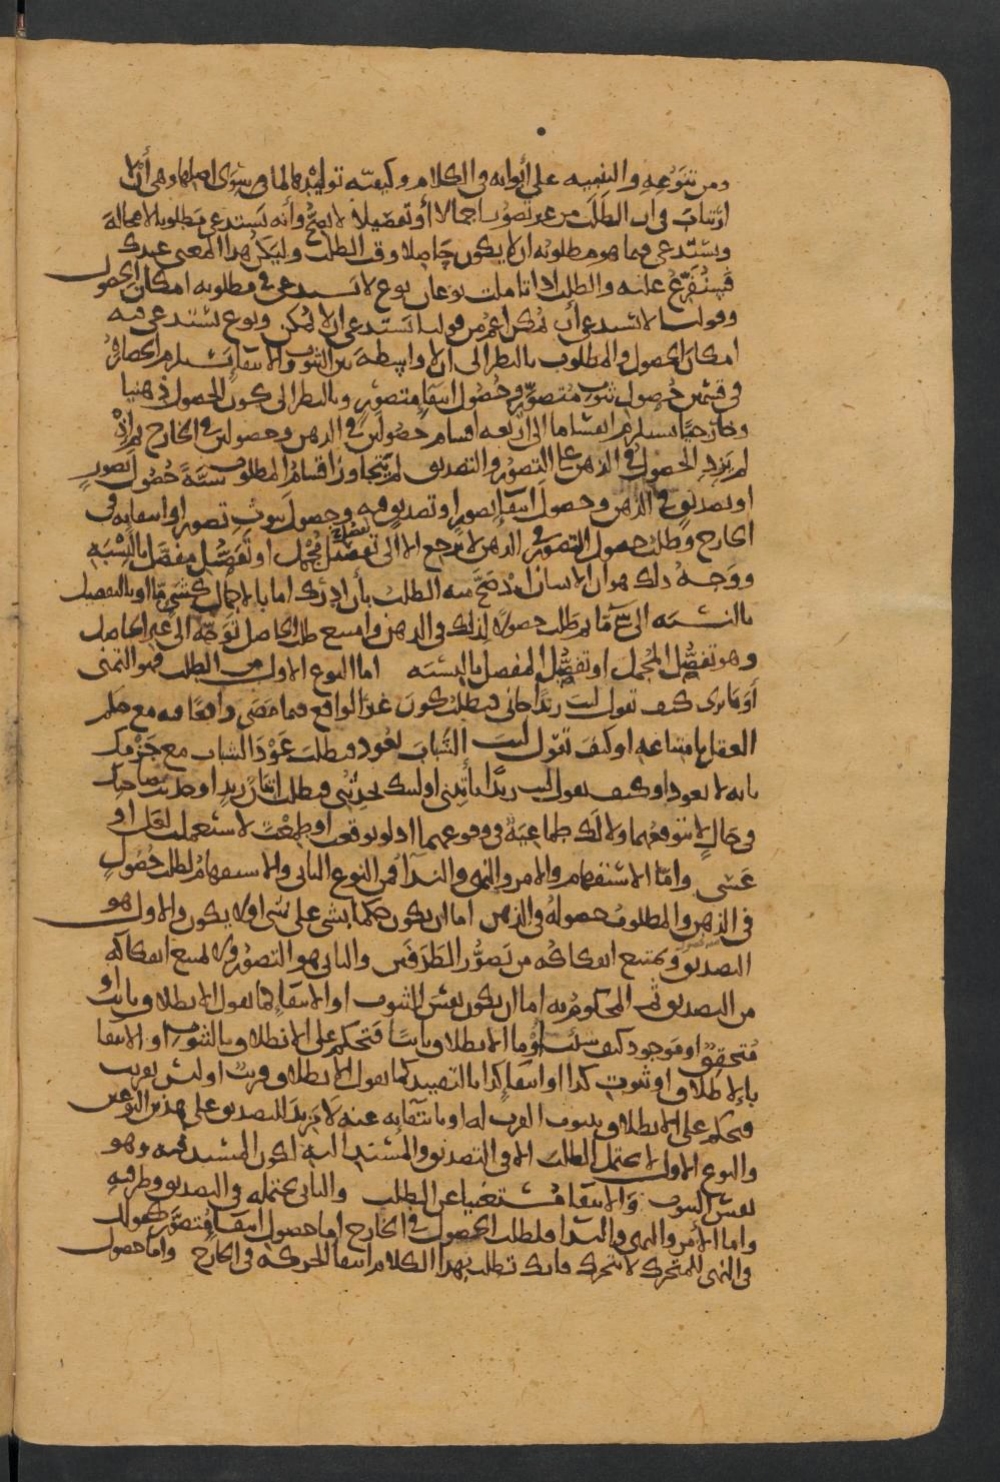 ومن تنوعه والتنبيه على أبوابه في الكلام وكيفية توليدها لما سوى اصلها وهي أن لا
ارتياب في ان الطلب من غير تصور اجمالا أو تفصيلا لا يصح وأنه يستدعي مطلوبا لا محالة
ويستدعي فيما هو مطلوبه ان لا يكون حاصلا وقت الطلب وليكن هذا المعنى عندك
فسنفرع عليه والطلب اذا تاملت نوعان نوع لا يستدعي في مطلوبه امكان الحصول
وقولنا لا يستدعي أن يمكن اعم من قولنا يستدعي ان لا يمكن ونوع يستدعي فيه
امكان الحصول والمطلوب بالنظر الى ان لا واسطة بين الثبوت والانتفا يستلزم انحصاره
في قسمين حصول ثبوت متصور وحصول انتفا متصور وبالنظر الى كون الحصول ذهنيا
وخارجيا يستلزم انقساما الى اربعة اقسام حصولين في الذهن وحصولين في الخارج ثم إذ
لم يزد الحصول في الذهن على التصور والتصديق لم يتجاوز اقسام المطلوب ستة حصول تصور
او تصديق في الذهن وحصول انتفا تصور او تصديق فيه وحصول ثبوت تصور او انتفايه في
الخارج وطلب حصول التصور في الذهن لا يرجع الا الى تفصيل مجمل او تفصيل مفصل بالنسبة
ووجه ذلك هو ان الانسان اذا صح منه الطلب بأن ادرك اما بالاجمال كشيء ما او بالتفصيل
بالنسبة الى شي ما ثم طلب حصولا لذلك في الذهن وامتنع طلب الحاصل توجه الى غير الحاصل
وهو تفصيل المجمل او تفصيل المفصل بالنسبة اما النوع الاول من الطلب فهو التمني
أوما ترى كيف تقول ليت زيدا جاني فتطلب كون غير الواقع فيما مضى واقعا فيه مع حكم
العقل بامتناعه او كيف تقول ليت الشباب يعود فتطلب عود الشباب مع جزمك
بانه لا يعود او كيف تقول ليت زيدا يأتيني او ليتك تحدثني فتطلب اتيان زيد او حديث صاحبك
في حال لا تتوقعهما ولا لك طماعية في وقوعهما اذ لو توقعت او طمعت لاستعملت لعل او
عسى وأما الاستفهام والامر والنهي والندآ فمن النوع الثاني والاستفهام لطلب حصول
في الذهن والمطلوب حصوله في الذهن اما ان يكون حكما بشي على شي او لا يكون والاول هو
التصديق ويمتنع انفكاكه من تصور الطرفين والثاني هو التصور ولا يمتنع انفكاكه
من التصديق ثم المحكوم به اما ان يكون نفس الثبوت او الانتفا كما تقول الانطلاق ثابت او
متحقق او موجود كيف شئت او ما الانطلاق ثابتا فتحكم على الانطلاق بالثبوت او الانتفا
بالاطلاق او ثبوت كذا او انتفا كذا بالتقييد كما تقول الانطلاق قريب او ليس بقريب
فتحكم على الانطلاق بثبوت القرب له او بانتفايه عنه لا مزيد للتصديق على هذين النوعين
والنوع الاول لا يحتمل الطلب الا في التصديق والمسند اليه لكون المسند فيه وهو
نفس الثبوت والانتفا مستغنيا عن الطلب والثاني يحتمله في التصديق وطرفيه
واما الأمر والنهي والندا فلطلب الحصول في الخارج اما حصول انتفا متصور كقولك
في النهي للمتحرك لا تتحرك فانك تطلب بهذا الكلام انتفا الحركة في الخارج واما حصول